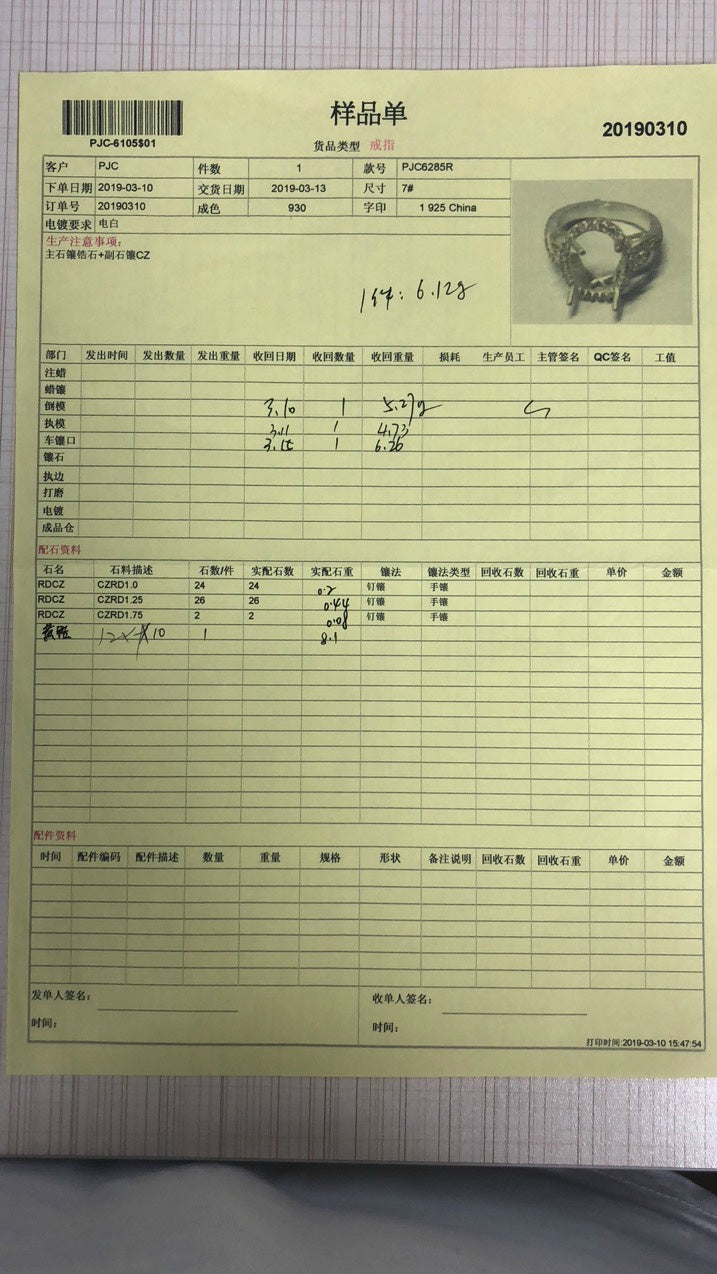 样品单
PJC-6105$01
20190310
货品类型 戒指
客户 PJC 件数 1 款号 PJC6285R
下单日期 2019-03-10 交货日期 2019-03-13 尺寸 7#
订单号 20190310 成色 930 字印 1 925 China
电镀要求 电白
生产注意事项:
主石镶锆石+副石镶CZ
1件: 6.12g
部门 发出时间 发出数量 发出重量 收回日期 收回数量 收回重量 损耗 生产员工 主管签名 QC签名 工值
注蜡
蜡镶
倒模 3.10 1 5.27g
执模 3.11 1 4.73
车镶口 1 6.26
镶石
执边
打磨
电镀
成品仓
配石资料
石名 石料描述 石数/件 实配石数 实配石重 镶法 镶法类型 回收石数 回收石重 单价 金额
RDCZ CZRD1.0 24 24 0.2 钉镶 手镶
RDCZ CZRD1.25 26 26 0.44 钉镶 手镶
RDCZ CZRD1.75 2 2 0.08 钉镶 手镶
1 8.1
配件资料
时间 配件编码 配件描述 数量 重量 规格 形状 备注说明 回收石数 回收石重 单价 金额
发单人签名: 收单人签名:
时间: 时间:
打印时间:2019-03-10 15:47:54